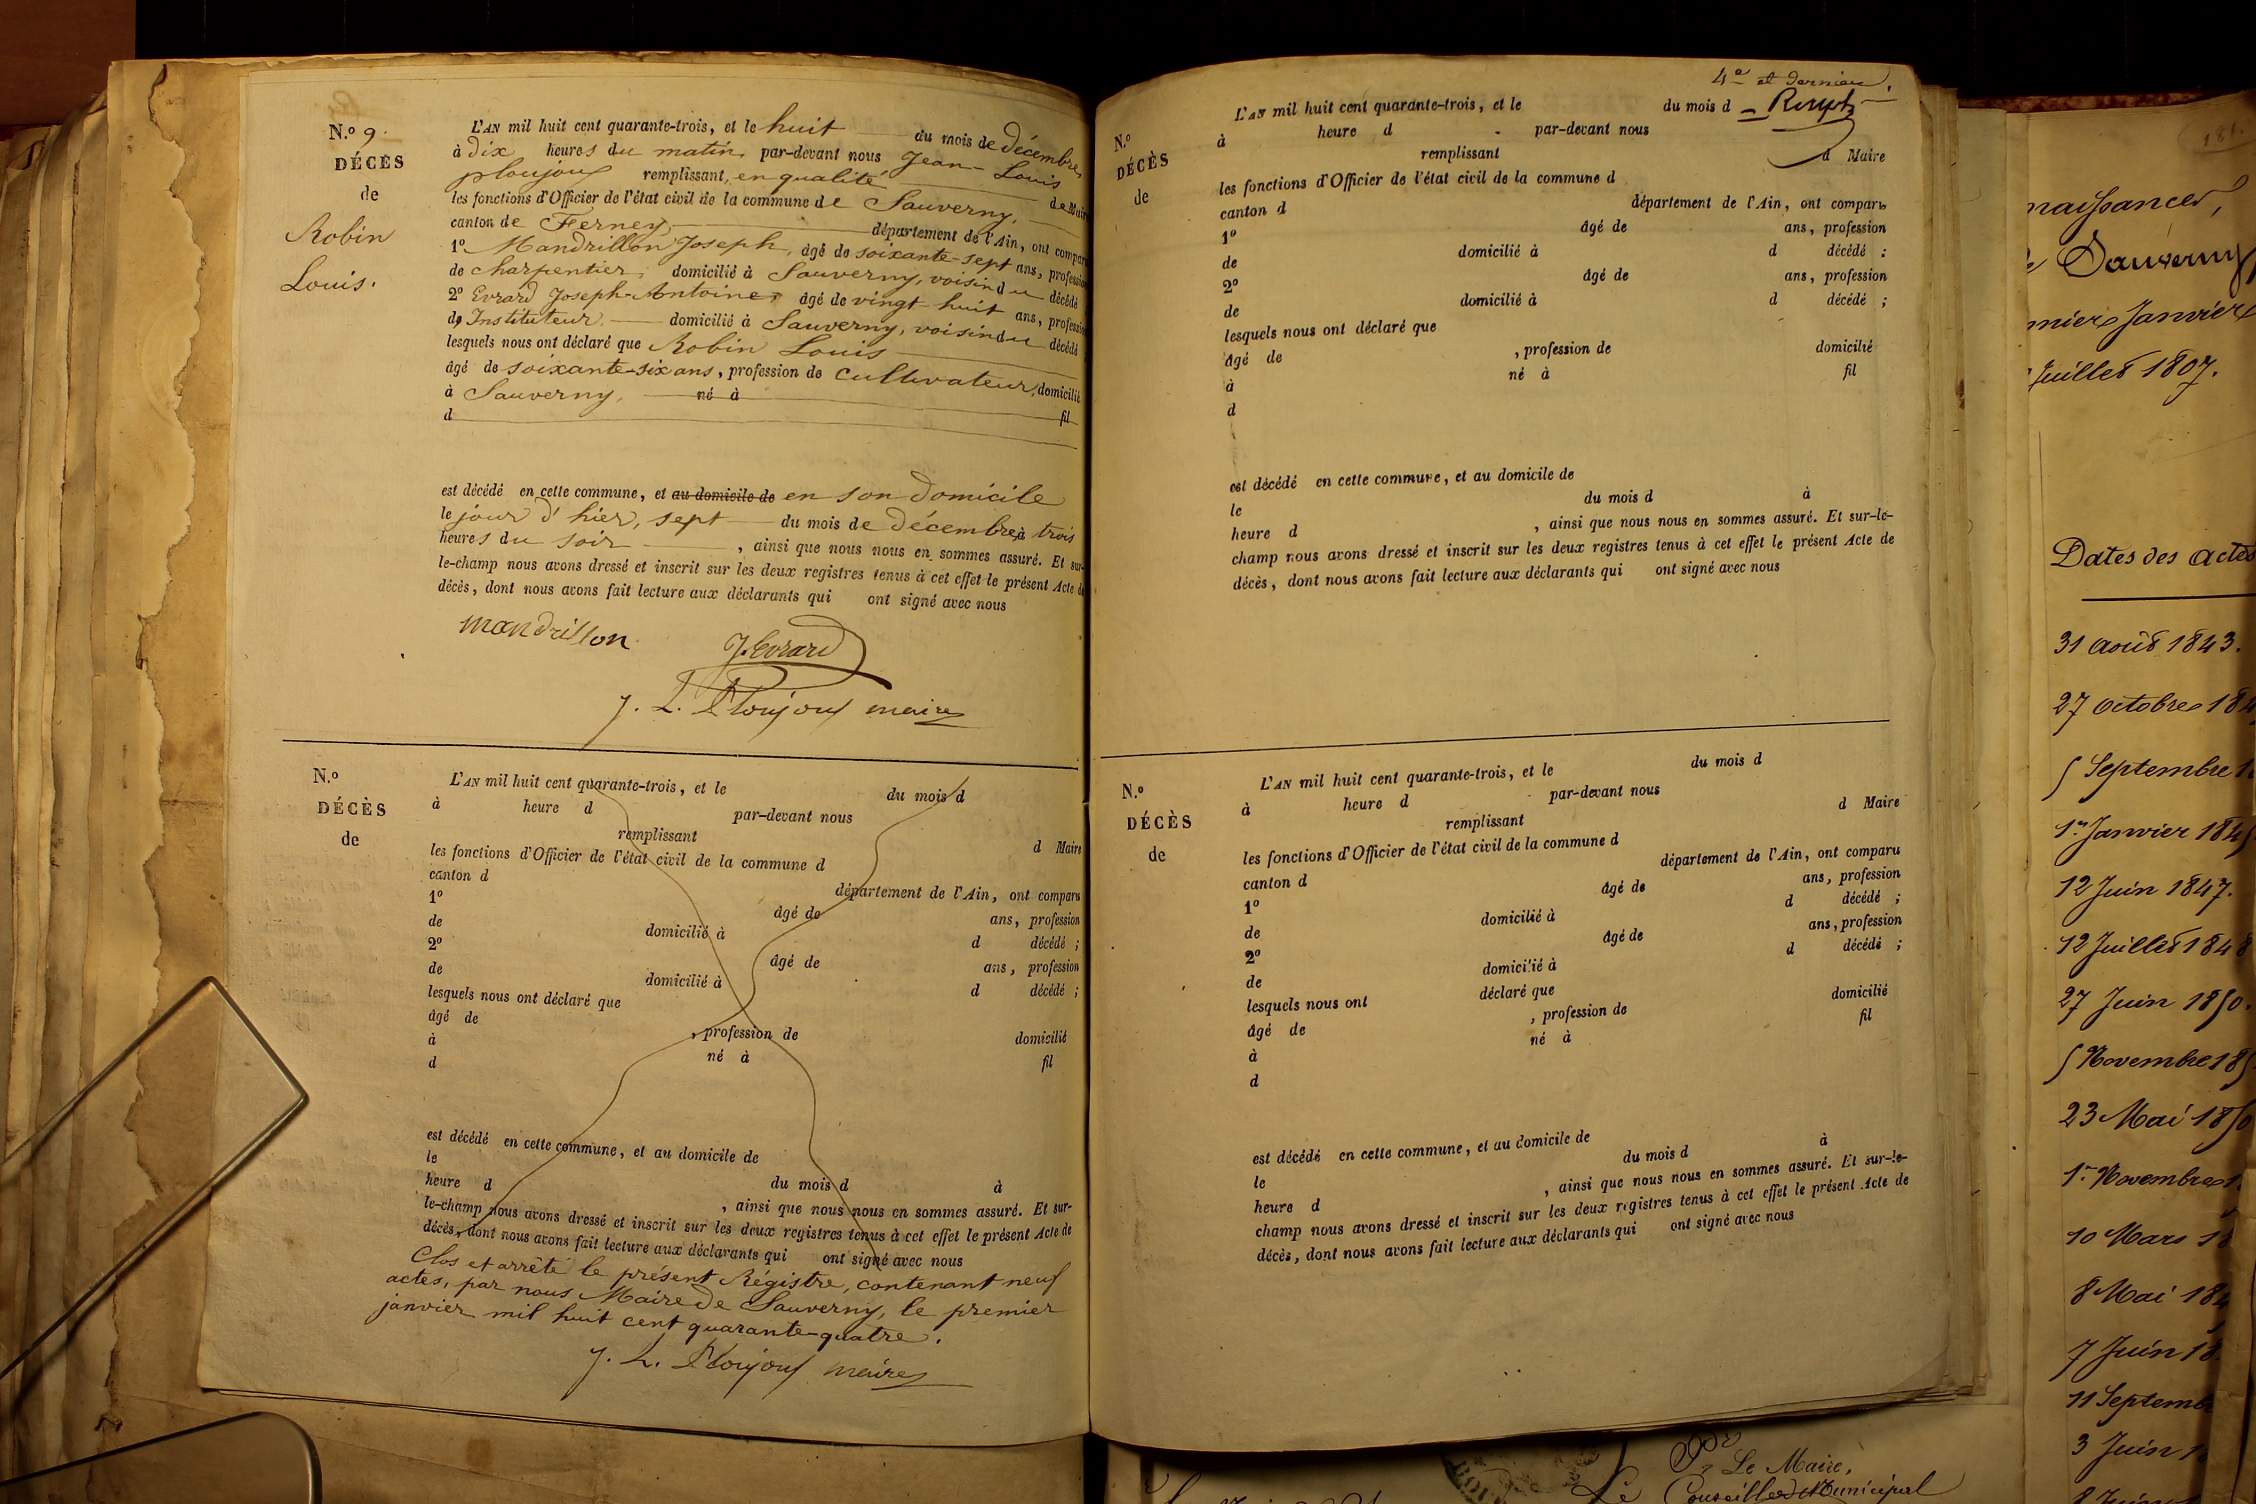 N.º 9.
DÉCÈS
de
Robin
Louis.
L'AN mil huit cent quarante-trois, et le huit du mois de Décembre,
à dix heures du matin, par-devant nous Jean-Louis
ploujoux remplissant, en qualité de Maire
les fonctions d'Officier de l'état civil de la commune de Sauverny,
canton de Ferney, département de l'Ain, ont comparu
1º Mandrillon Joseph, âgé de soixante-sept ans, profession
de charpentier, domicilié à Sauverny, voisin du décédé
2º Evrard Joseph-Antoine, âgé de vingt huit ans, profession
de Instituteur domicilié à Sauverny, voisin du décédé
lesquels nous ont déclaré que Robin Louis
âgé de soixante-six ans, profession de cultivateur, domicilié
à Sauverny, né à
d fil
est décédé en cette commune, et au domicile de en son domicile
le jour d'hier, sept du mois de Décembre, à trois
heures du soir, ainsi que nous nous en sommes assuré. Et sur-
le-champ nous avons dressé et inscrit sur les deux registres tenus à cet effet le présent Acte de
décès, dont nous avons fait lecture aux déclarants qui ont signé avec nous
mandrillon J. Evrard
J. L. Ploujoux maire
N.º
DÉCÈS
de
L'AN mil huit cent quarante-trois, et le du mois d
à heure d par-devant nous
remplissant d Maire
les fonctions d'Officier de l'état civil de la commune d
canton d département de l'Ain, ont comparu
1º âgé de ans, profession
de domicilié à d décédé ;
2º âgé de ans, profession
de domicilié à d décédé ;
lesquels nous ont déclaré que
âgé de , profession de domicilié
à né à fil
d
est décédé en cette commune, et au domicile de
le du mois d à
heure d , ainsi que nous nous en sommes assuré. Et sur-
le-champ nous avons dressé et inscrit sur les deux registres tenus à cet effet le présent Acte de
décès, dont nous avons fait lecture aux déclarants qui ont signé avec nous
Clos et arrêté le présent Régistre, contenant neuf
actes, par nous Maire de Sauverny, le premier
janvier mil huit cent quarante-quatre.
J. L. Ploujoux maire
4e et dernier.
N.º
DÉCÈS
de
L'AN mil huit cent quarante-trois, et le du mois d
à heure d par-devant nous
remplissant d Maire
les fonctions d'Officier de l'état civil de la commune d
canton d département de l'Ain, ont comparu
1º âgé de ans, profession
de domicilié à d décédé ;
2º âgé de ans, profession
de domicilié à d décédé ;
lesquels nous ont déclaré que
âgé de , profession de domicilié
à né à fil
d
est décédé en cette commune, et au domicile de
le du mois d à
heure d , ainsi que nous nous en sommes assuré. Et sur-le-
champ nous avons dressé et inscrit sur les deux registres tenus à cet effet le présent Acte de
décès, dont nous avons fait lecture aux déclarants qui ont signé avec nous
N.º
DÉCÈS
de
L'AN mil huit cent quarante-trois, et le du mois d
à heure d par-devant nous
remplissant d Maire
les fonctions d'Officier de l'état civil de la commune d
canton d département de l'Ain, ont comparu
1º âgé de ans, profession
de domicilié à d décédé ;
2º âgé de ans, profession
de domicilié à d décédé ;
lesquels nous ont déclaré que
âgé de , profession de domicilié
à né à fil
d
est décédé en cette commune, et au domicile de
le du mois d à
heure d , ainsi que nous nous en sommes assuré. Et sur-le-
champ nous avons dressé et inscrit sur les deux registres tenus à cet effet le présent Acte de
décès, dont nous avons fait lecture aux déclarants qui ont signé avec nous
181.
naissances,
Sauverny
Janvier
Juillet 1807.
Dates des actes
31 août 1843.
27 octobre 184
5 Septembre 1
1er Janvier 184
12 Juin 1847.
12 Juillet 1848
27 Juin 1850.
5 Novembre 185
23 Mai 1850
1er Novembre 1
10 Mars 18
8 Mai 184
7 Juin 18
11 Septemb
3 Juin 1
8 Juin
Le Maire,
Le Conseiller Municipal